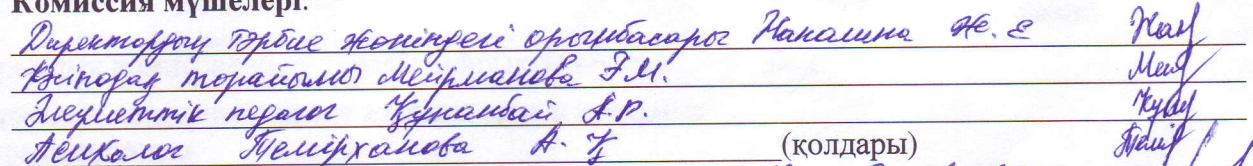 Комиссия мүшелері:
Директордың тәрбие жөніндегі орынбасары Напалина Ж. Е
Кәсіподақ төрайымы Мейрманова Э.М.
Әлеуметтік педагог Құнанбай А.Р.
Психолог Темірханова А. Қ (қолдары)